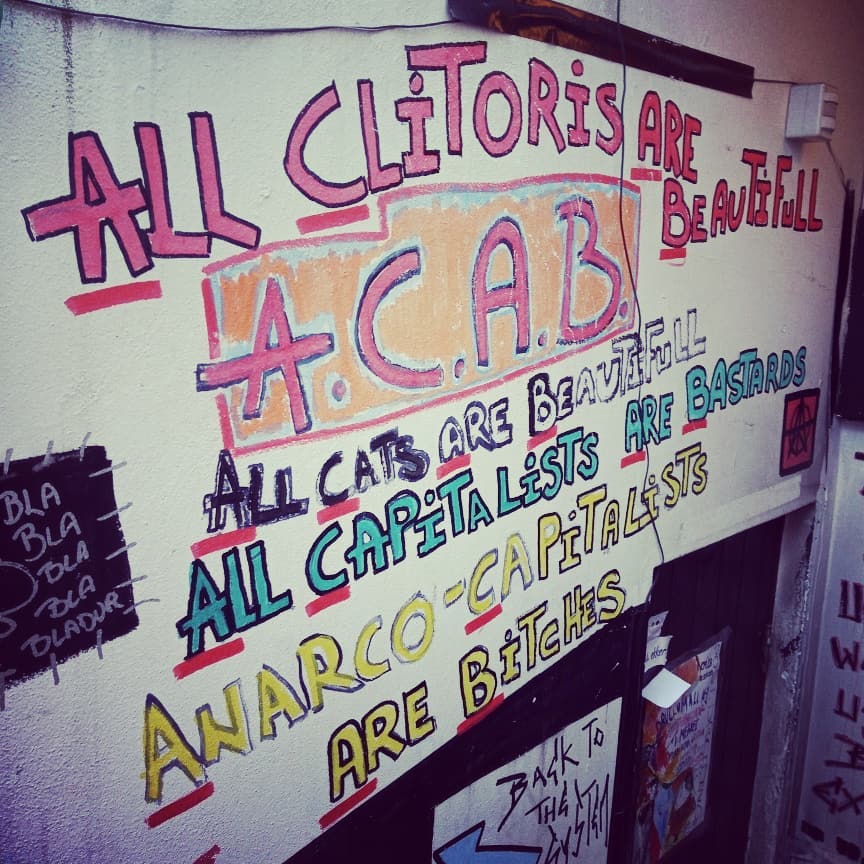 ALL CLiTORiS ARE
BEAUTiFULL
A.C.A.B.
ALL CATS ARE BEAUTiFULL
ALL CAPiTALiSTS ARE BASTARDS
ANARCO-CAPiTALiSTS
ARE BiTCHES
BLA
BLA
BLA
BLA
BLADUR
BACK TO
THE
SYSTEM